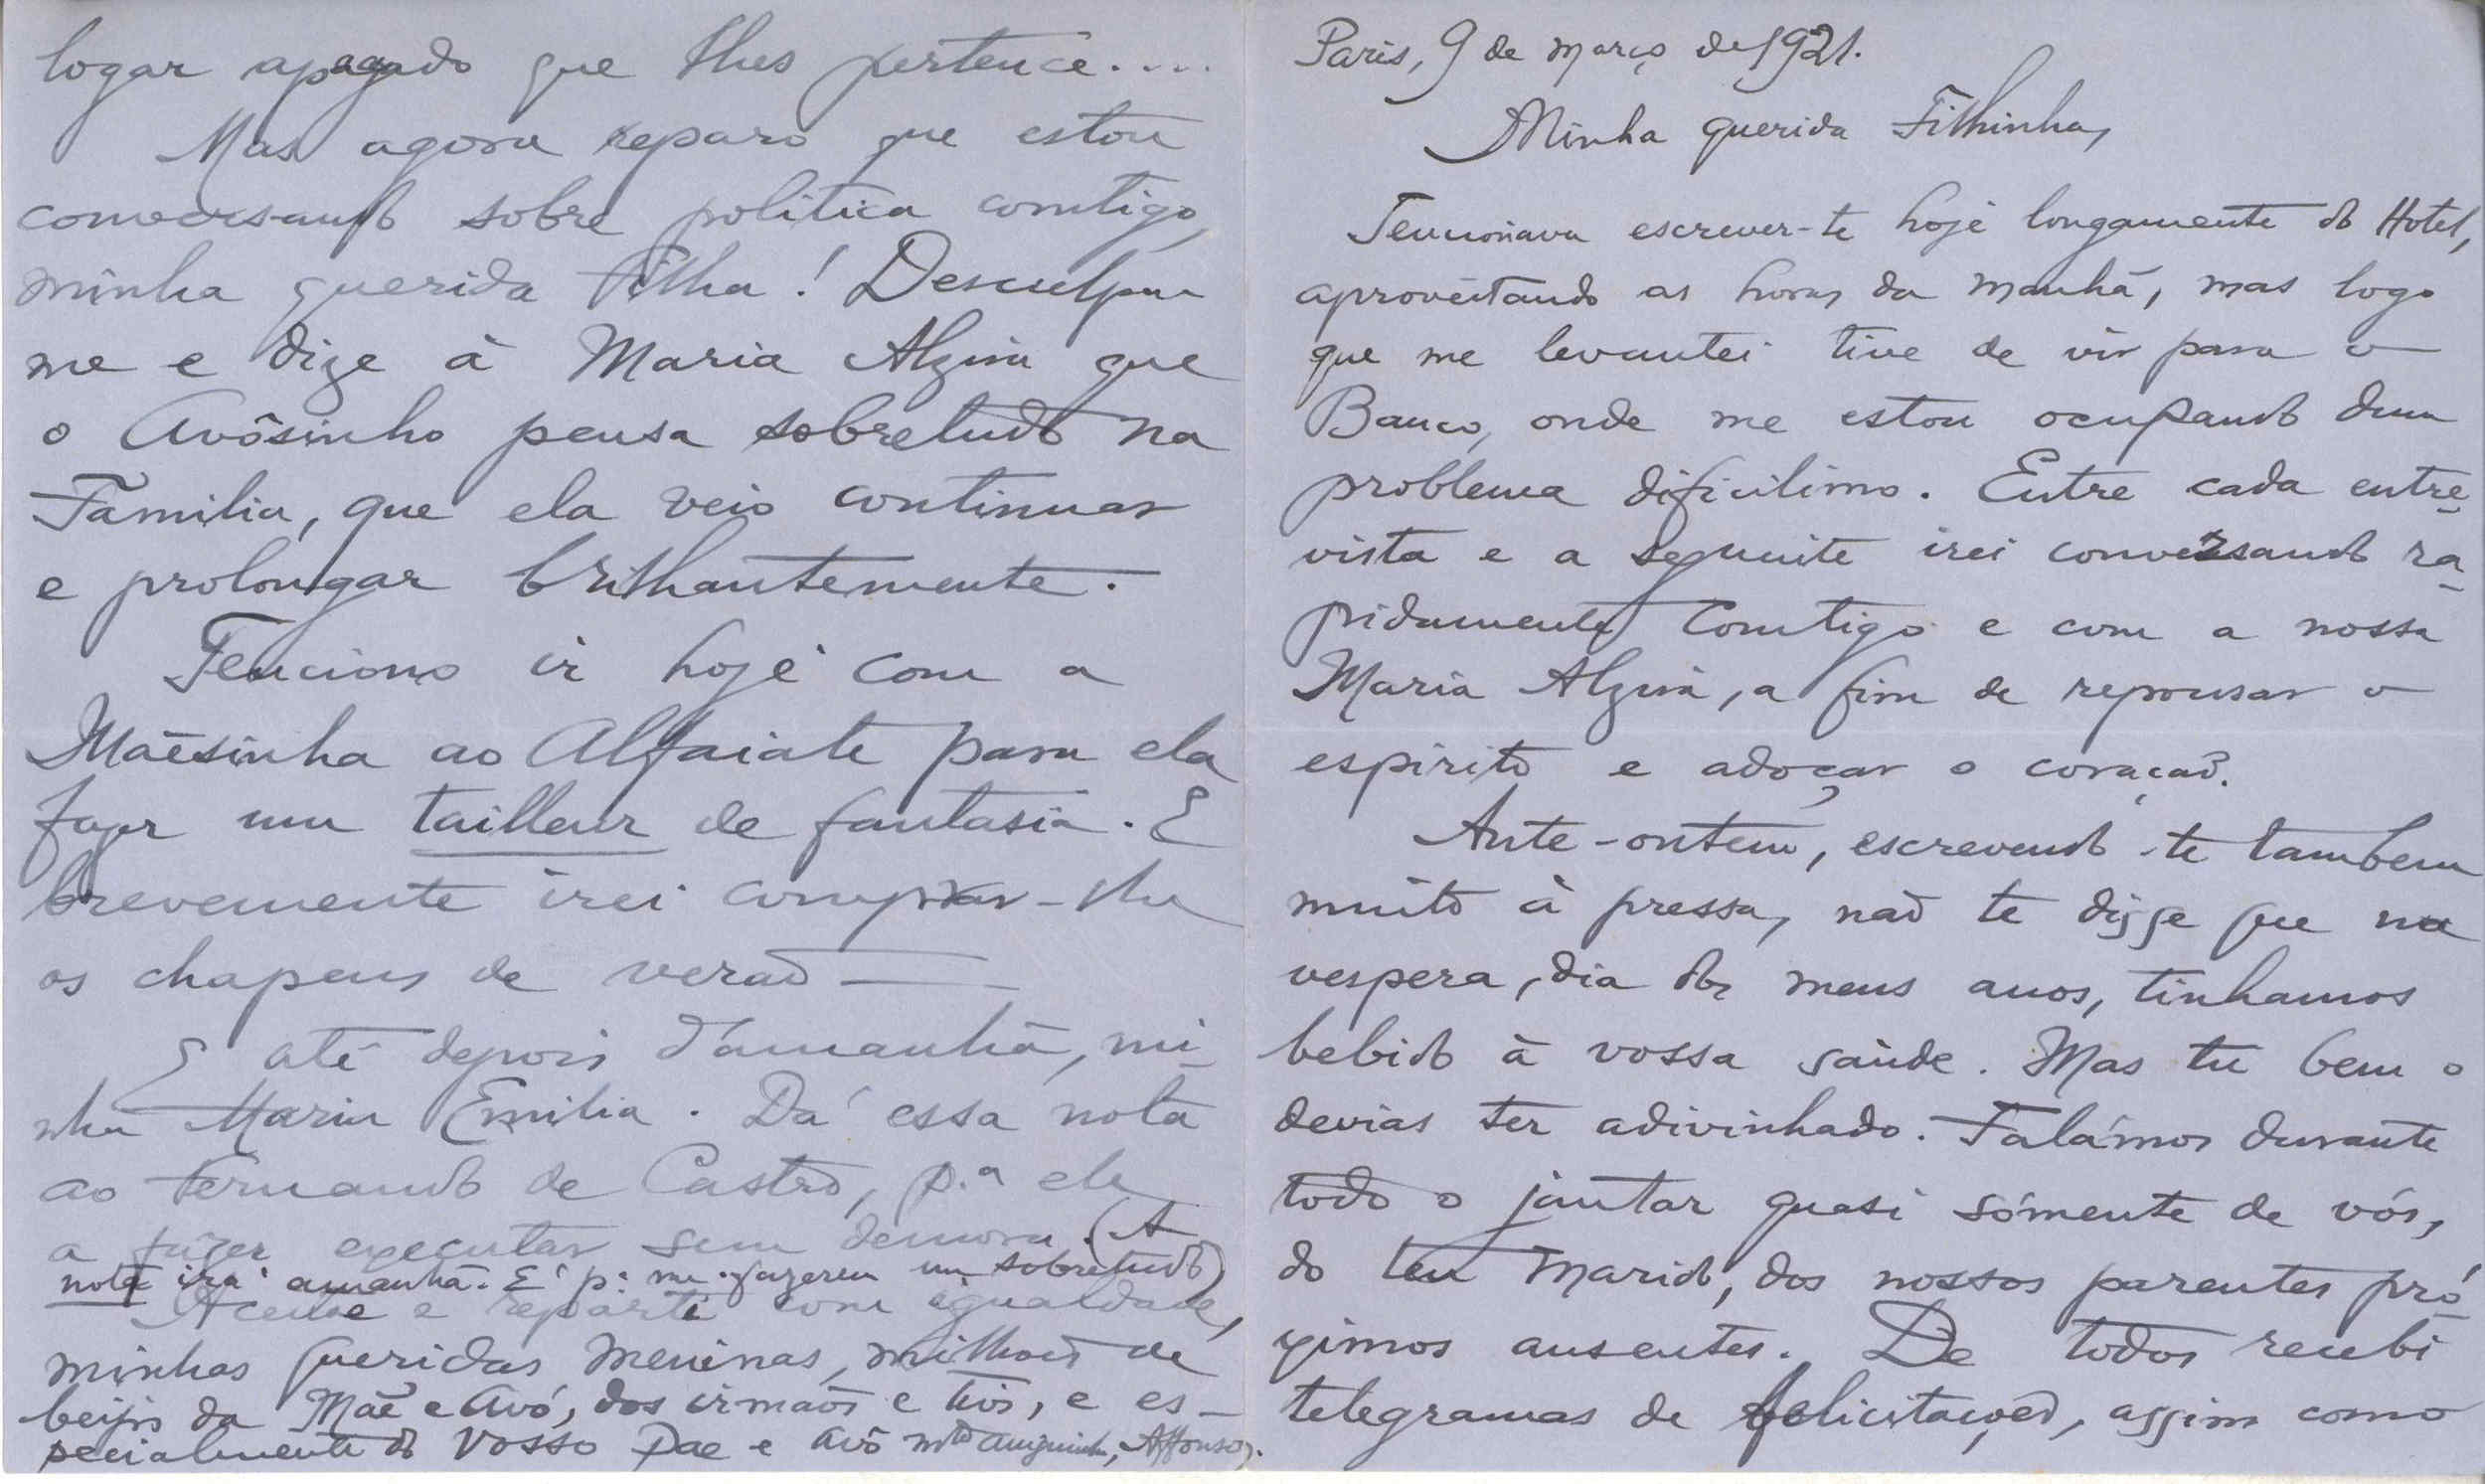 Paris, 9 de março de 1921.
Minha querida Filhinha,
Tencionava escrever-te hoje longamente do Hotel,
aproveitando as horas da manhã, mas logo
que me levantei tive de vir para o
Banco, onde me estou ocupando dum
problema dificilimo. Entre cada entre-
vista e a seguinte irei conversando ra-
pidamente comtigo e com a nossa
Maria Alzira, a fim de repousar o
espirito e adoçar o coração.
Ante-ontem, escrevendo-te tambem
muito à pressa, não te disse que na
vespera, dia dos meus anos, tinhamos
bebido à vossa saúde. Mas tu bem o
devias ter adivinhado. Falámos durante
todo o jantar quasi sómente de vós,
do teu Marido, dos nossos parentes pró-
ximos ausentes. De todos recebi
telegramas de felicitações, assim como
logar apagado que lhes pertence....
Mas agora reparo que estou
conversando sobre politica comtigo,
minha querida Filha! Desculpa-
me e dize à Maria Alzira que
o Avôsinho pensa sobretudo na
Familia, que ela veio continuar
e prolongar brilhantemente.
Tenciono ir hoje com a
Mãesinha ao Alfaiate para ela
fazer um tailleur de fantasia. E
brevemente irei comprar-lhe
os chapeus de verão —
E até depois d'amanhã, mi-
nha Maria Emilia. Dá essa nota
ao Fernando de Castro, p.ª ele
a fazer executar sem demora. (A
nota irá amanhã. É p.ª me fazerem um sobretudo)
Aceitae e reparti com egualdade,
minhas queridas meninas, milhões de
beijos da Mãe e Avó, dos irmãos e tios, e es-
pecialmente do vosso Pae e Avô mto amiguinho, Affonso.